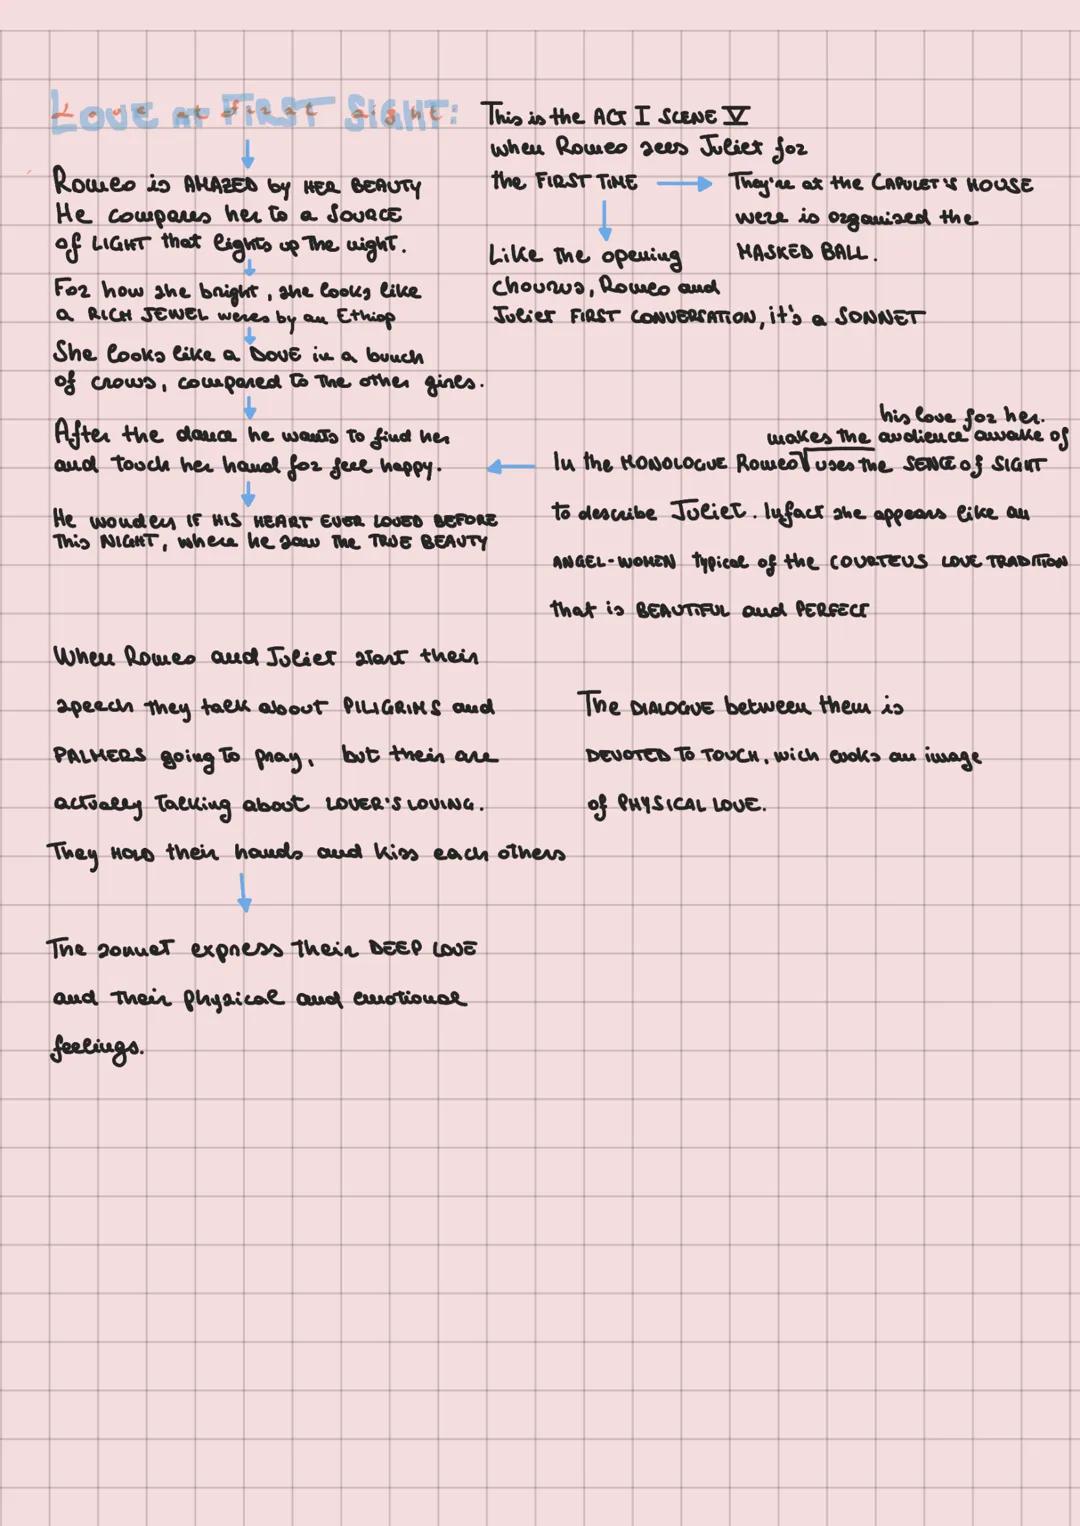 LOVE AT FIRST SIGHT:
This is the ACT I SCENE V
when Romeo sees Juliet for
the FIRST TIME
They're at the CAPULET'S HOUSE
were is organised the
MASKED BALL.
Like the opening
chourus, Romeo and
Juliet FIRST CONVERSATION, it's a SONNET
Romeo is AMAZED by HER BEAUTY
He compares her to a SOURCE
of LIGHT that lights up the night.
For how she bright, she looks like
a RICH JEWEL weres by an Ethiop
She looks like a DOVE in a bunch
of crows, compared to the other girls.
After the dance he wants to find her
and touch her hand for feel happy.
He wonders IF HIS HEART EVER LOVED BEFORE
This NIGHT, where he saw the TRUE BEAUTY
his love for her.
makes the audience awake of
In the MONOLOGUE Romeo uses the SENCE of SIGHT
to describe Juliet. Infact she appears like an
ANGEL-WOMEN typical of the COURTEUS LOVE TRADITION
that is BEAUTIFUL and PERFECT
When Romeo and Juliet start their
speech they talk about PILIGRIMS and
PALMERS going to pray, but their are
actually talking about LOVER'S LOVING.
They HOLD their hands and kiss each others
The DIALOGUE between them is
DEVOTED TO TOUCH, wich evoks an image
of PHYSICAL LOVE.
The sonnet express their DEEP LOVE
and their physical and emotional
feelings.